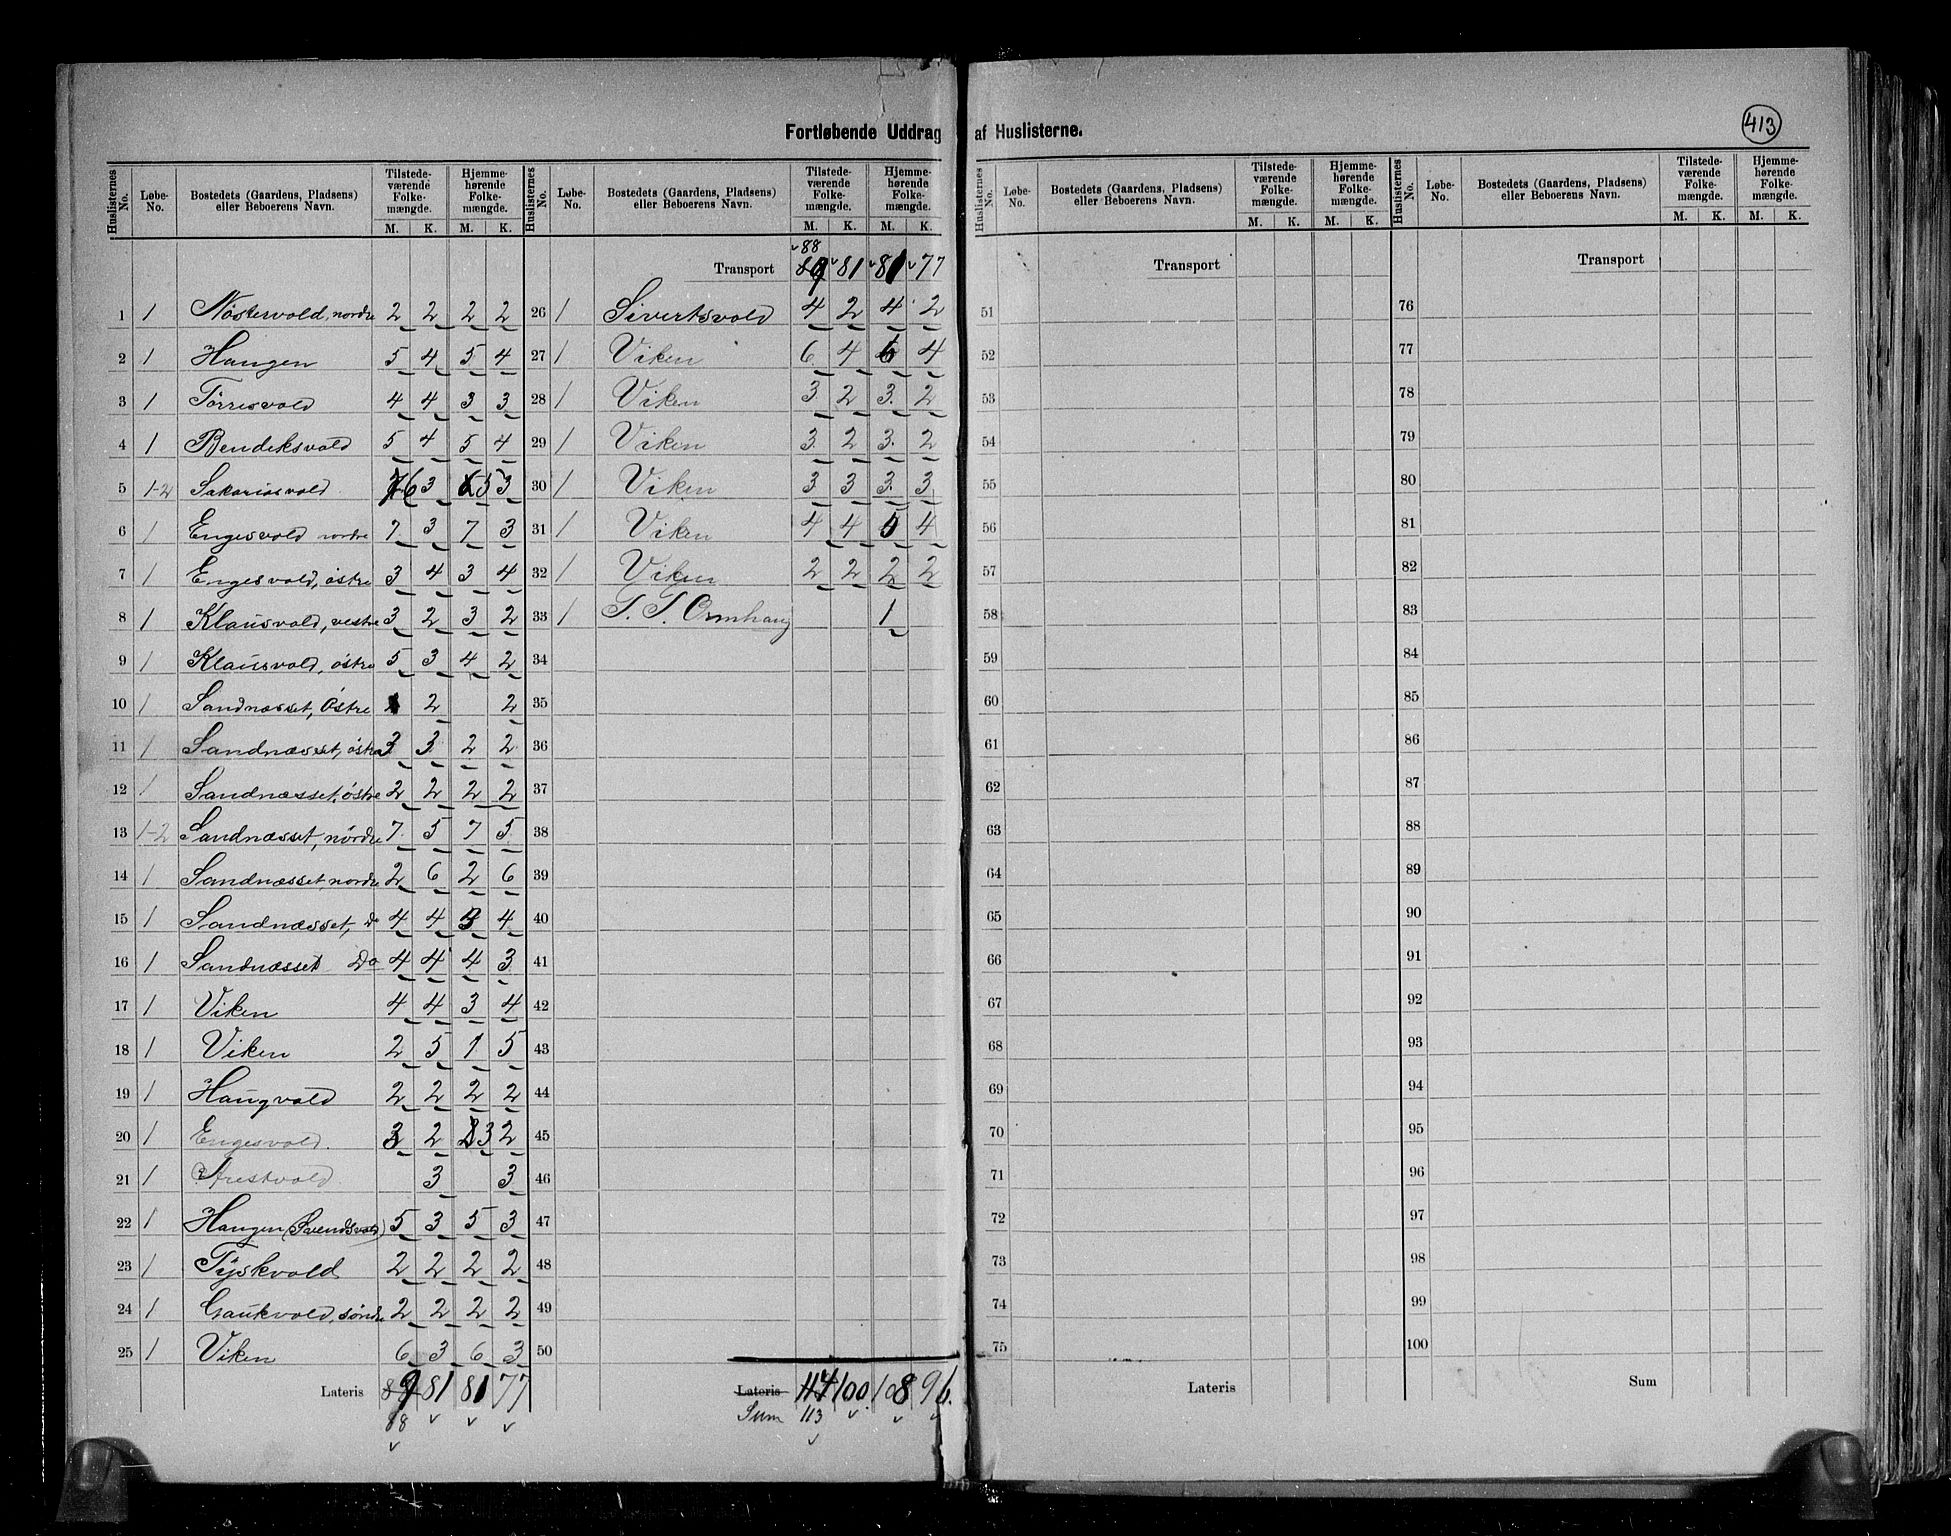 413
Fortløbende Uddrag af Huslisterne.
Huslisternes No. | Løbe-No. | Bostedets (Gaardens, Pladsens) eller Beboerens Navn. | Tilstedeværende Folkemængde. M. K. | Hjemmehørende Folkemængde. M. K.
1 | 1 | Nöstervold, nordre | 2 | 2 | 2 | 2
2 | 1 | Haugen | 5 | 4 | 5 | 4
3 | 1 | Törresvold | 4 | 4 | 3 | 3
4 | 1 | Bendeksvold | 5 | 4 | 5 | 4
5 | 1-2 | Sakariasvold | 7 6 | 3 | 6 5 | 3
6 | 1 | Engesvold nordre | 7 | 3 | 7 | 3
7 | 1 | Engesvold, östre | 3 | 4 | 3 | 4
8 | 1 | Klausvold, vestre | 3 | 2 | 3 | 2
9 | 1 | Klausvold, östre | 5 | 3 | 4 | 2
10 | 1 | Sandnæsset, Östre | | 2 | | 2
11 | 1 | Sandnæsset, östre | 3 | 3 | 2 | 2
12 | 1 | Sandnæsset, östre | 2 | 2 | 2 | 2
13 | 1-2 | Sandnæsset, nördre | 7 | 5 | 7 | 5
14 | 1 | Sandnæsset nordre | 2 | 6 | 2 | 6
15 | 1 | Sandnæsset, Do | 4 | 4 | 3 | 4
16 | 1 | Sandnæsset Do | 4 | 4 | 4 | 3
17 | 1 | Viken | 4 | 4 | 3 | 4
18 | 1 | Viken | 2 | 5 | 1 | 5
19 | 1 | Haugvold | 2 | 2 | 2 | 2
20 | 1 | Engesvold. | 3 | 2 | 2 3 | 2
21 | 1 | | | 3 | | 3
22 | 1 | Haugen (Svendsvold) | 5 | 3 | 5 | 3
23 | 1 | Tyskvold | 2 | 2 | 2 | 2
24 | 1 | Gaukvold, söndre | 2 | 2 | 2 | 2
25 | 1 | Viken | 6 | 3 | 6 | 3
Lateris | 89 | 81 | 81 | 77
88
Huslisternes No. | Løbe-No. | Bostedets (Gaardens, Pladsens) eller Beboerens Navn. | Tilstedeværende Folkemængde. M. K. | Hjemmehørende Folkemængde. M. K.
88
Transport | 89 | 81 | 81 | 77
26 | 1 | Sivertsvold | 4 | 2 | 4 | 2
27 | 1 | Viken | 6 | 4 | 6 | 4
28 | 1 | Viken | 3 | 2 | 3 | 2
29 | 1 | Viken | 3 | 2 | 3 | 2
30 | 1 | Viken | 3 | 3 | 3 | 3
31 | 1 | Viken | 4 | 4 | | 4
32 | 1 | Viken | 2 | 2 | 2 | 2
33 | 1 | T. T. Ormhaug | | | 1 |
34
35
36
37
38
39
40
41
42
43
44
45
46
47
48
49
50
Lateris | 114 | 100 | 108 | 96.
Sum 113
Huslisternes No. | Løbe-No. | Bostedets (Gaardens, Pladsens) eller Beboerens Navn. | Tilstedeværende Folkemængde. M. K. | Hjemmehørende Folkemængde. M. K.
Transport
51
52
53
54
55
56
57
58
59
60
61
62
63
64
65
66
67
68
69
70
71
72
73
74
75
Lateris
Huslisternes No. | Løbe-No. | Bostedets (Gaardens, Pladsens) eller Beboerens Navn. | Tilstedeværende Folkemængde. M. K. | Hjemmehørende Folkemængde. M. K.
Transport
76
77
78
79
80
81
82
83
84
85
86
87
88
89
90
91
92
93
94
95
96
97
98
99
100
Sum